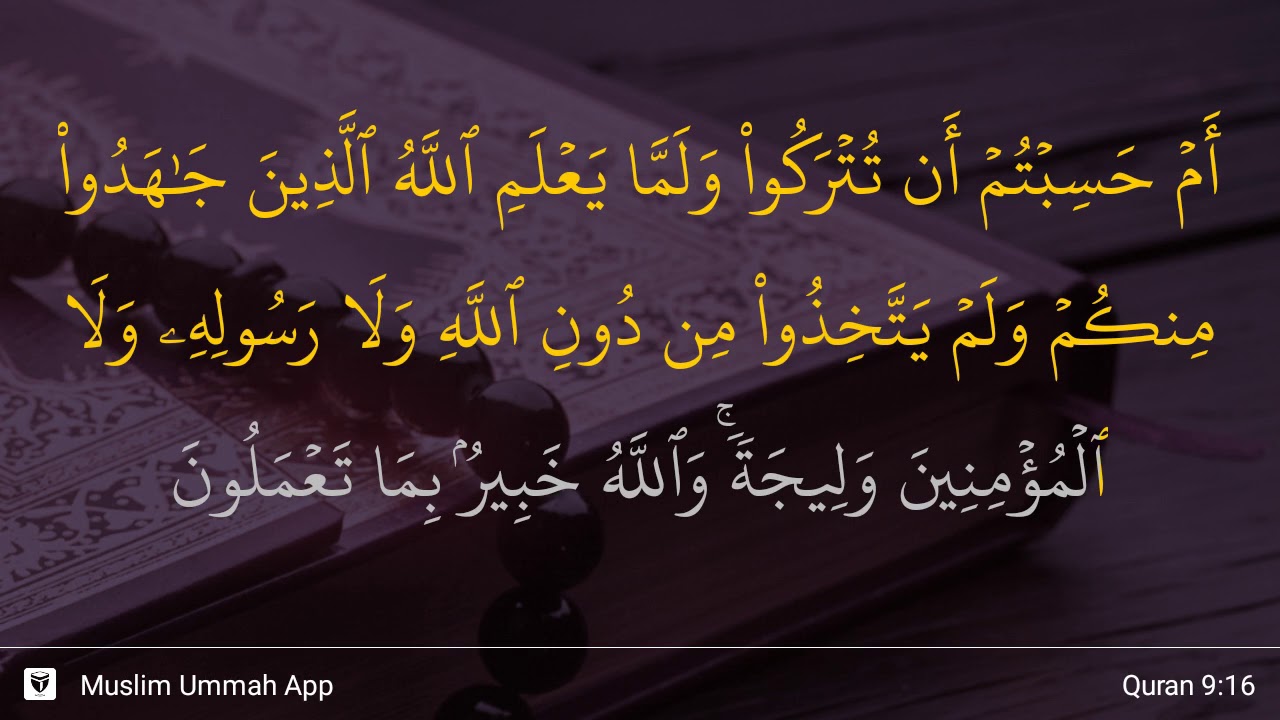 أَمۡ حَسِبۡتُمۡ أَن تُتۡرَكُواْ وَلَمَّا يَعۡلَمِ ٱللَّهُ ٱلَّذِينَ جَٰهَدُواْ
مِنكُمۡ وَلَمۡ يَتَّخِذُواْ مِن دُونِ ٱللَّهِ وَلَا رَسُولِهِۦ وَلَا
ٱلۡمُؤۡمِنِينَ وَلِيجَةٗۚ وَٱللَّهُ خَبِيرُۢ بِمَا تَعۡمَلُونَ
Muslim Ummah App
Quran 9:16